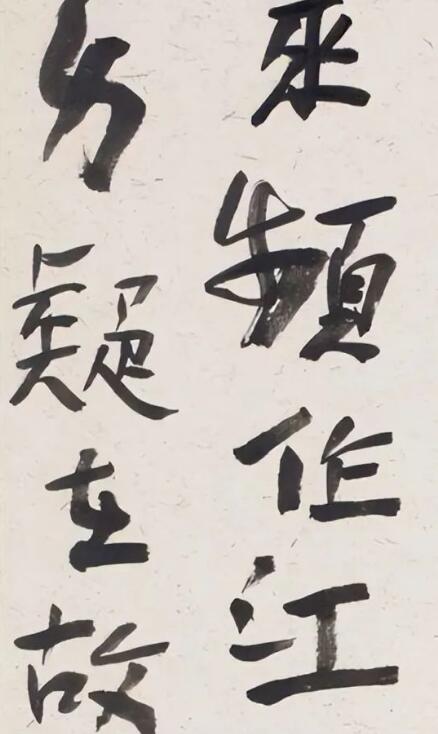 來頻作江
方疑在故